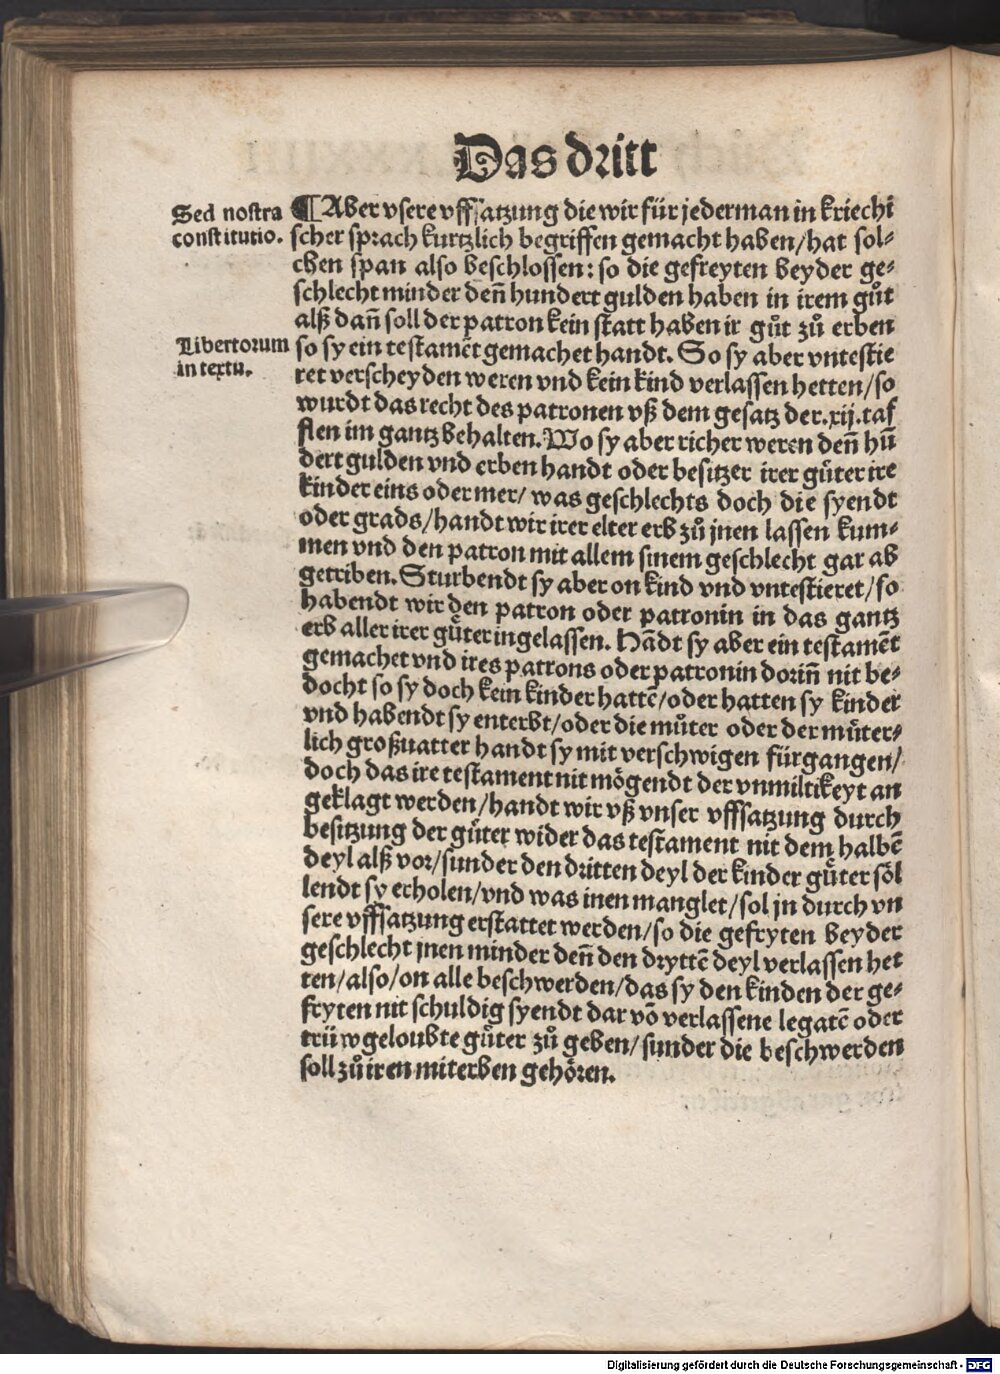 Das dritt
Sed nostra
constitutio.
¶ Aber vsere vffsatzung die wir für jederman in kriechi
scher sprach kurtzlich begriffen gemacht haben/hat sol⸗
chen span also beschlossen: so die gefreyten beyder ge⸗
schlecht minder deñ hundert gulden haben in irem gůt
alß dañ soll der patron kein statt haben ir gůt zů erben
Libertorum
in textu.
so sy ein testamēt gemachet handt. So sy aber vntestie
ret verscheyden weren vnd kein kind verlassen hetten/so
wurdt das recht des patronen vß dem gesatz der.xij.taf
flen im gantz behalten. Wo sy aber richer weren deñ hū
dert gulden vnd erben handt oder besitzer irer gůter ire
kinder eins oder mer/ was geschlechts doch die syendt
oder grads/handt wir irer elter erb zů jnen lassen kum⸗
men vnd den patron mit allem sinem geschlecht gar ab
getriben. Sturbendt sy aber on kind vnd vntestieret/so
habendt wir den patron oder patronin in das gantz
erb aller irer gůter ingelassen. Hādt sy aber ein testamēt
gemachet vnd ires patrons oder patronin doriñ nit be⸗
docht so sy doch kein kinder hattē/oder hatten sy kinder
vnd habendt sy enterbt/oder die můter oder der můter⸗
lich großuatter handt sy mit verschwigen fürgangen/
doch das ire testament nit mögendt der vnmiltikeyt an
geklagt werden/handt wir vß vnser vffsatzung durch
besitzung der gůter wider das testament nit dem halbē
deyl alß vor/sunder den dritten deyl der kinder gůter söl
lendt sy erholen/vnd was inen manglet/sol jn durch vn
sere vffsatzung erstattet werden/so die gefryten beyder
geschlecht jnen minder deñ den dryttē deyl verlassen het
ten/also/on alle beschwerden/das sy den kinden der ge⸗
fryten nit schuldig syendt dar vō verlassene legatē oder
trüwgeloubte gůter zů geben/sunder die beschwerden
soll zů iren miterben gehören.
Digitalisierung gefördert durch die Deutsche Forschungsgemeinschaft - DFG